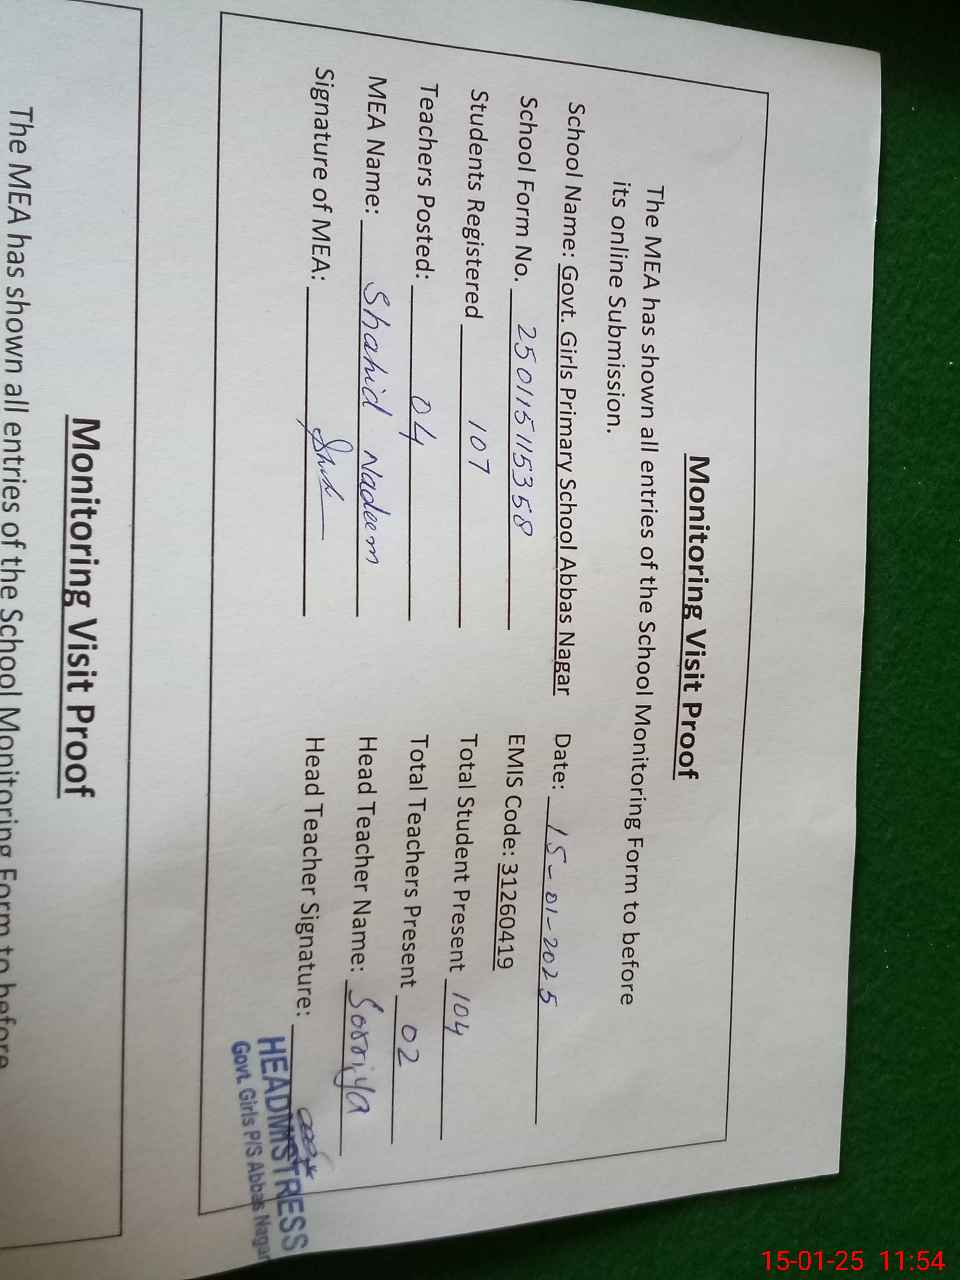 Monitoring Visit Proof
The MEA has shown all entries of the School Monitoring Form to before
its online Submission.
School Name: Govt. Girls Primary School Abbas Nagar Date: 15-01-2025
School Form No. 250115115358 EMIS Code: 31260419
Students Registered 107 Total Student Present 104
Teachers Posted: 04 Total Teachers Present 02
MEA Name: Shahid Nadeem Head Teacher Name:
Signature of MEA: Head Teacher Signature:
HEADMISTRESS
Govt. Girls P/S Abbas Nagar
Monitoring Visit Proof
The MEA has shown all entries of the School Monitoring Form to before
15-01-25 11:54